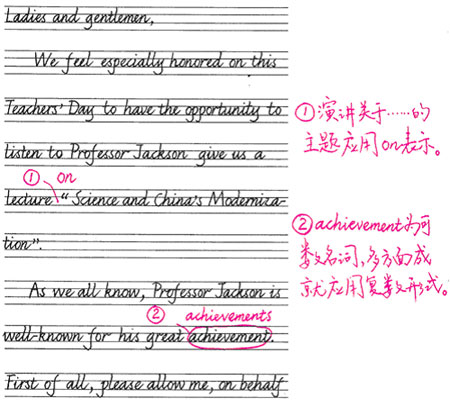 Ladies and gentlemen,
We feel especially honored on this
Teachers' Day to have the opportunity to
listen to Professor Jackson give us a
① on
lecture "Science and China's Moderniza-
tion".
As we all know, Professor Jackson is
② achievements
well-known for his great achievement.
First of all, please allow me, on behalf
①演讲关于……的
主题应用on表示。
②achievement为可
数名词,多方面成
就应用复数形式。